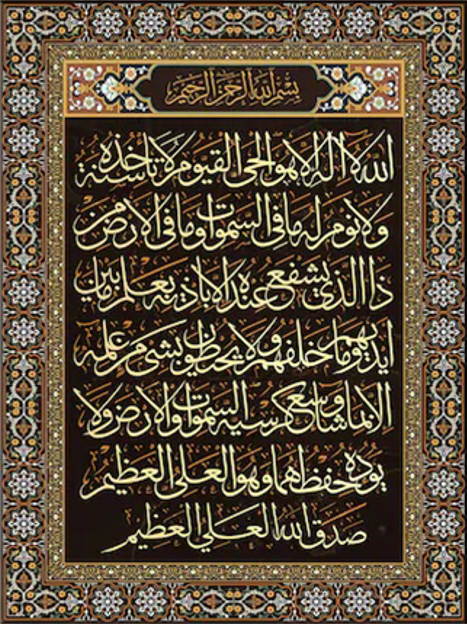 بسم الله الرحمن الرحيم
الله لا اله الا هو الحي القيوم لا تاخذه سنة
ولا نوم له ما في السموات وما في الارض من
ذا الذي يشفع عنده الا باذنه يعلم ما بين
ايديهم وما خلفهم ولا يحيطون بشيء من علمه
الا بما شاء وسع كرسيه السموات والارض ولا
يوده حفظهما وهو العلي العظيم
صدق الله العلي العظيم